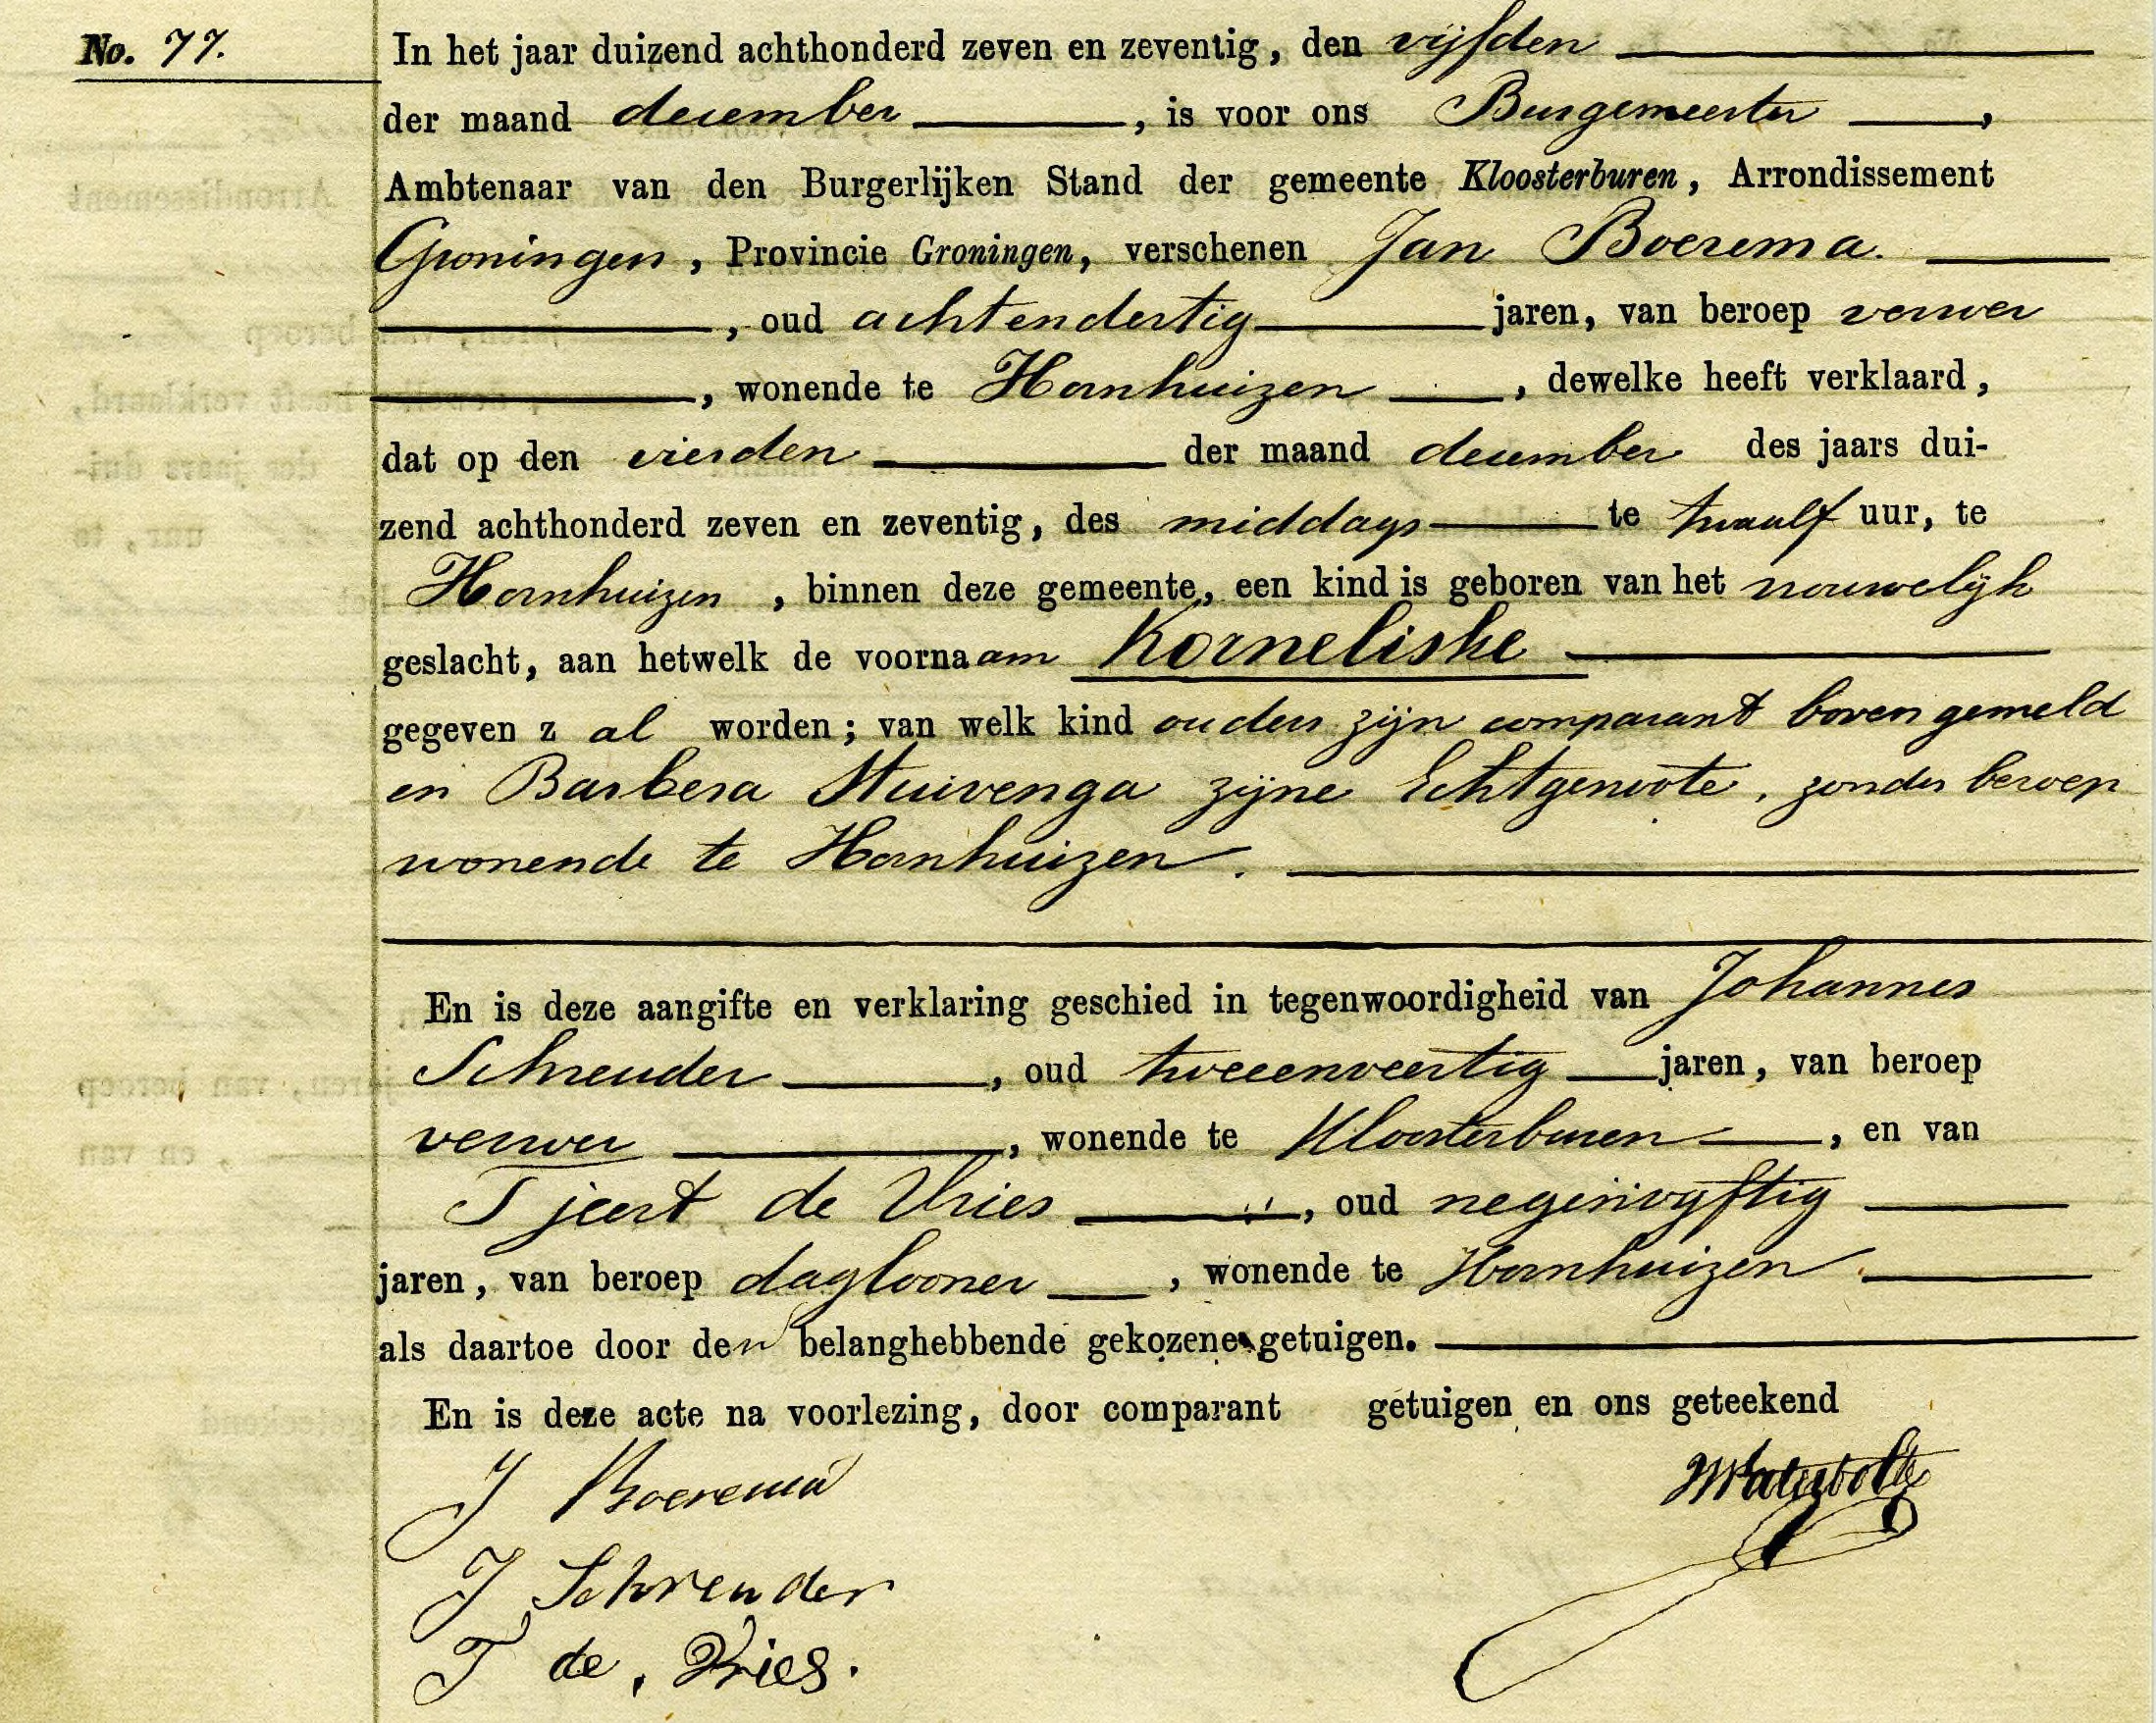 No. 77.
In het jaar duizend achthonderd zeven en zeventig, den vijfden
der maand december, is voor ons Burgemeester,
Ambtenaar van den Burgerlijken Stand der gemeente Kloosterburen, Arrondissement
Groningen, Provincie Groningen, verschenen Jan Boerema.
, oud achtendertig jaren, van beroep verwer
, wonende te Hornhuizen, dewelke heeft verklaard,
dat op den vierden der maand december des jaars dui-
zend achthonderd zeven en zeventig, des middags te twaalf uur, te
Hornhuizen, binnen deze gemeente, een kind is geboren van het vrouwelijk
geslacht, aan hetwelk de voornaam Korneliske
gegeven zal worden; van welk kind ouders zijn comparant bovengemeld
en Barbera Stuivenga zijne Echtgenoote, zonder beroep
wonende te Hornhuizen.
En is deze aangifte en verklaring geschied in tegenwoordigheid van Johannes
Schreuder, oud tweeenveertig jaren, van beroep
verwer, wonende te Kloosterburen, en van
Tjeert de Vries, oud negenvyftig
jaren, van beroep daglooner, wonende te Hornhuizen
als daartoe door den belanghebbende gekozene getuigen.
En is deze acte na voorlezing, door comparant getuigen en ons geteekend
J Boerema
J Schreuder
T de Vries.